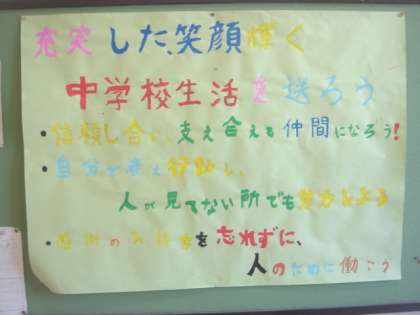 充実した、笑顔輝く
中学校生活を送ろう
・信頼し合い、支え合える仲間になろう!
・自分で考え行動し、
人が見てない所でも努力しよう
・感謝の気持ちを忘れずに、
人のために働こう